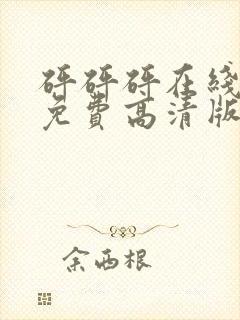 砰砰砰在线
免费高清版
余西根